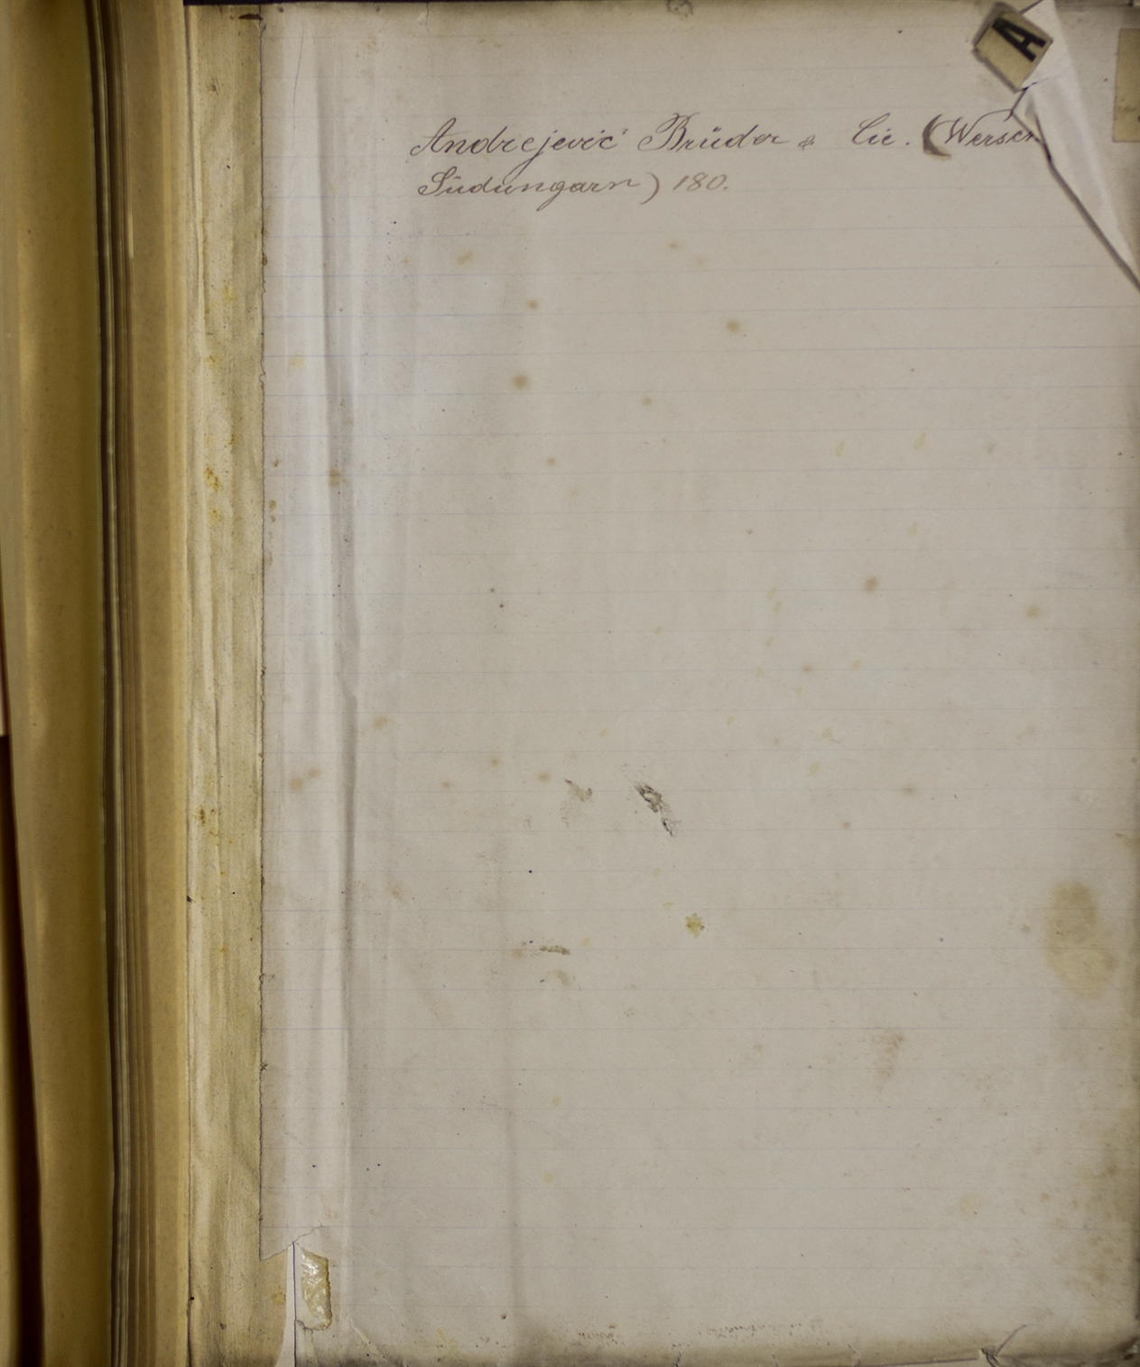 A
Andrejević Brüder & Cie. (Wersch
Südungarn) 180.